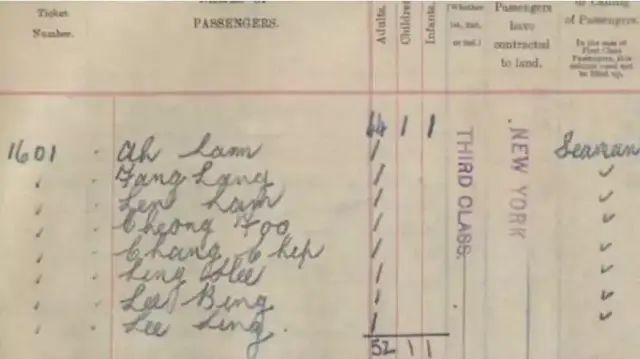 Ticket
Number.
NAMES OF
PASSENGERS.
Adults.
Children
Infants.
(Whether
1st, 2nd,
or 3rd.)
Passengers
have
contracted
to land.
or Calling
of Passengers.
In the case of
First Class
Passengers, this
column need not
be filled up.
44 1 1
1601 Ah Lam / Seaman
Fang Lang /
Len Lam /
Cheong Foo /
Chang Chip /
Ling Hee /
Lee Bing /
Lee Ling. /
THIRD CLASS.
NEW YORK
52 1 1